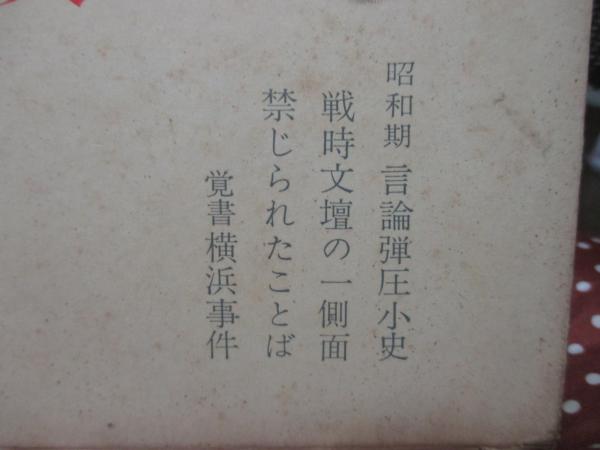 昭和期 言論弾圧小史
戦時文壇の一側面
禁じられたことば
覚書横浜事件